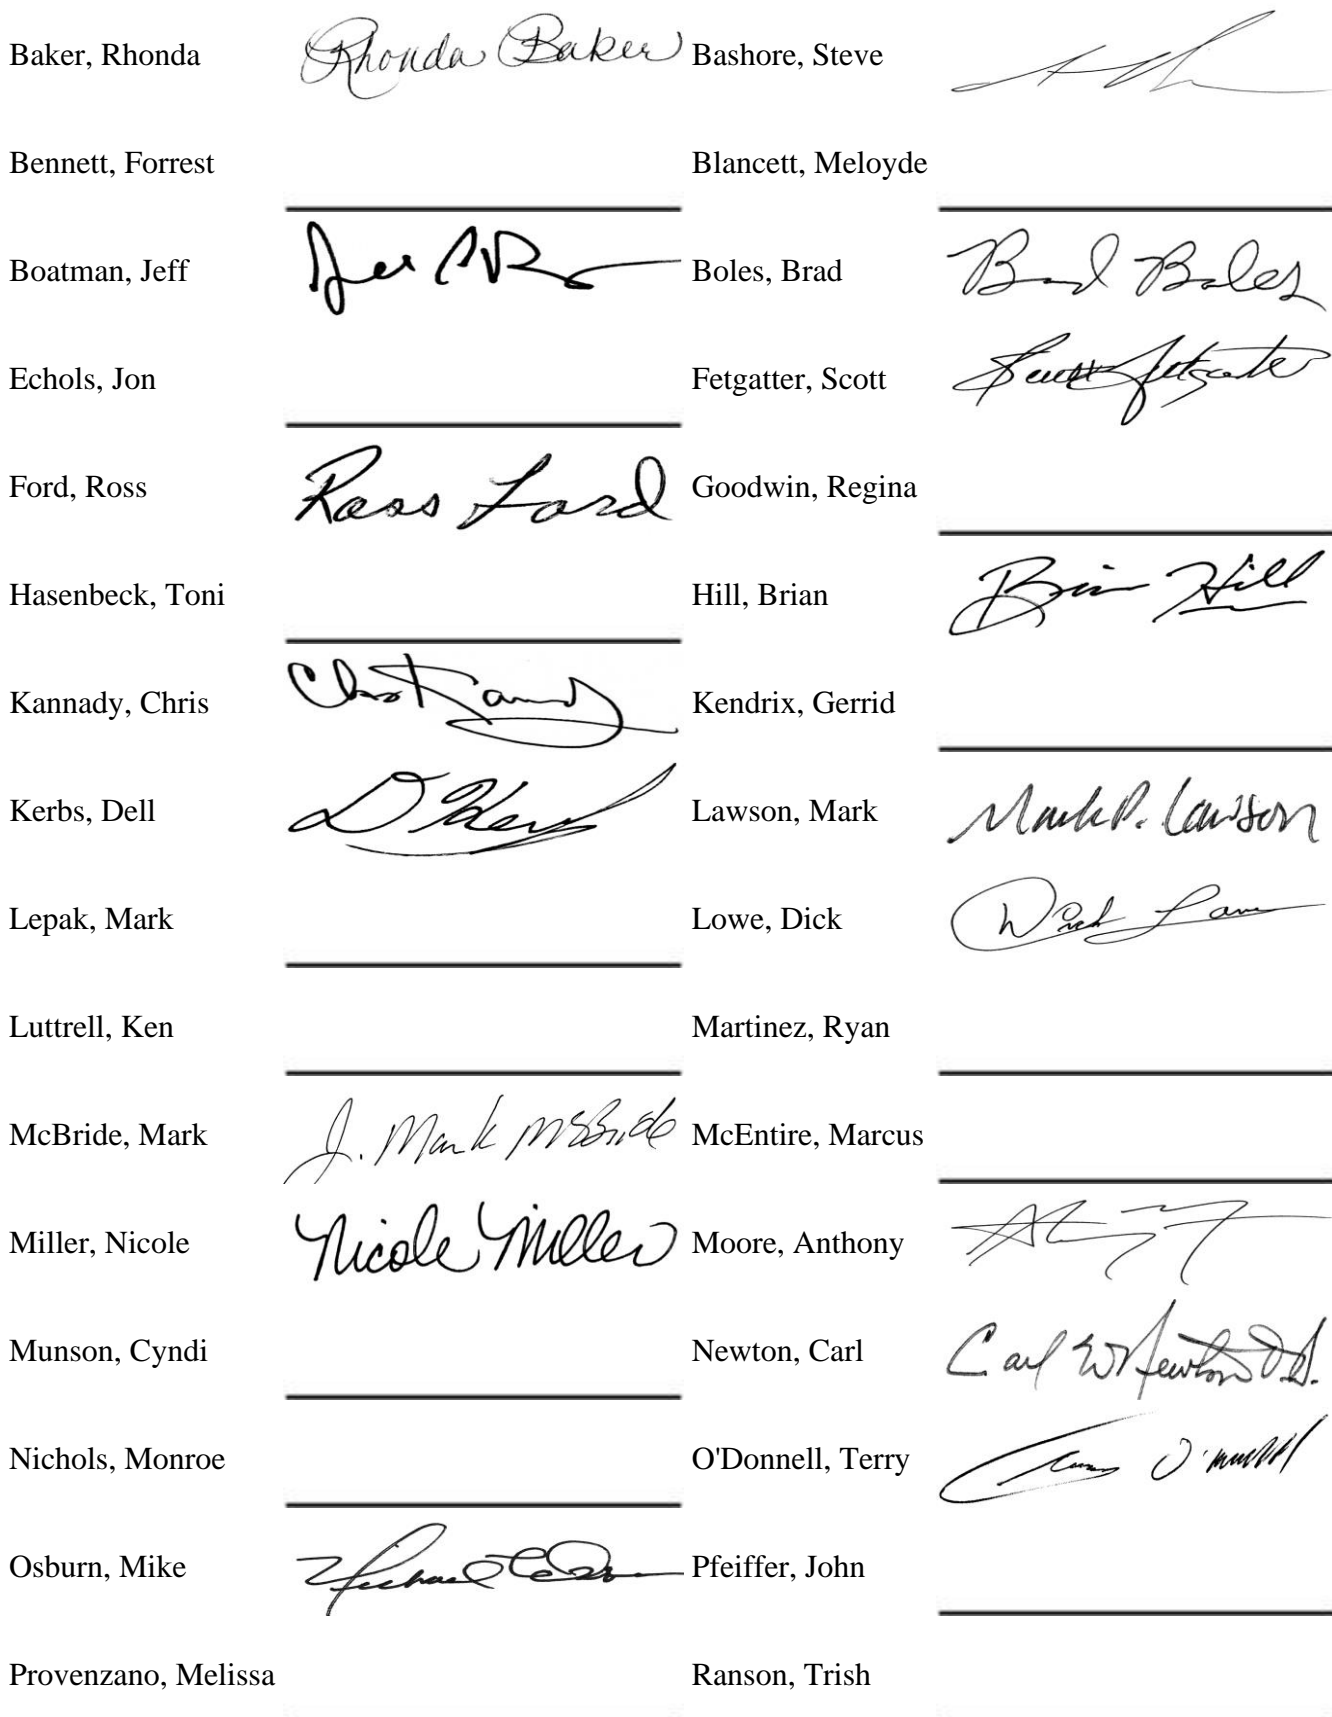 Baker, Rhonda Rhonda Baker Bashore, Steve
Bennett, Forrest Blancett, Meloyde
Boatman, Jeff Boles, Brad Brad Boles
Echols, Jon Fetgatter, Scott Scott Fetgatter
Ford, Ross Ross Ford Goodwin, Regina
Hasenbeck, Toni Hill, Brian Brian Hill
Kannady, Chris Chris Kannady Kendrix, Gerrid
Kerbs, Dell D Kerbs Lawson, Mark Mark P. Lawson
Lepak, Mark Lowe, Dick Dick Lowe
Luttrell, Ken Martinez, Ryan
McBride, Mark J. Mark McBride McEntire, Marcus
Miller, Nicole Nicole Miller Moore, Anthony
Munson, Cyndi Newton, Carl Carl W Newton D.O.
Nichols, Monroe O'Donnell, Terry Terry O'Donnell
Osburn, Mike Michael Pfeiffer, John
Provenzano, Melissa Ranson, Trish